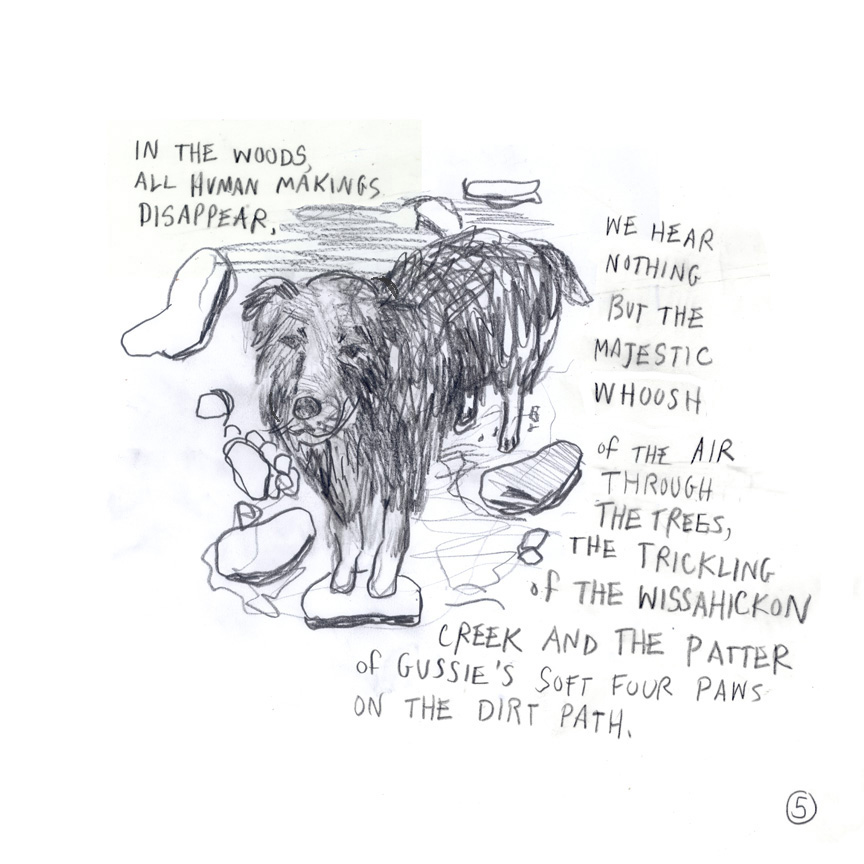 IN THE WOODS,
ALL HUMAN MAKINGS
DISAPPEAR.
WE HEAR
NOTHING
BUT THE
MAJESTIC
WHOOSH
of THE AIR
THROUGH
THE TREES,
THE TRICKLING
of THE WISSAHICKON
CREEK AND THE PATTER
of GUSSIE'S SOFT FOUR PAWS
ON THE DIRT PATH.
5